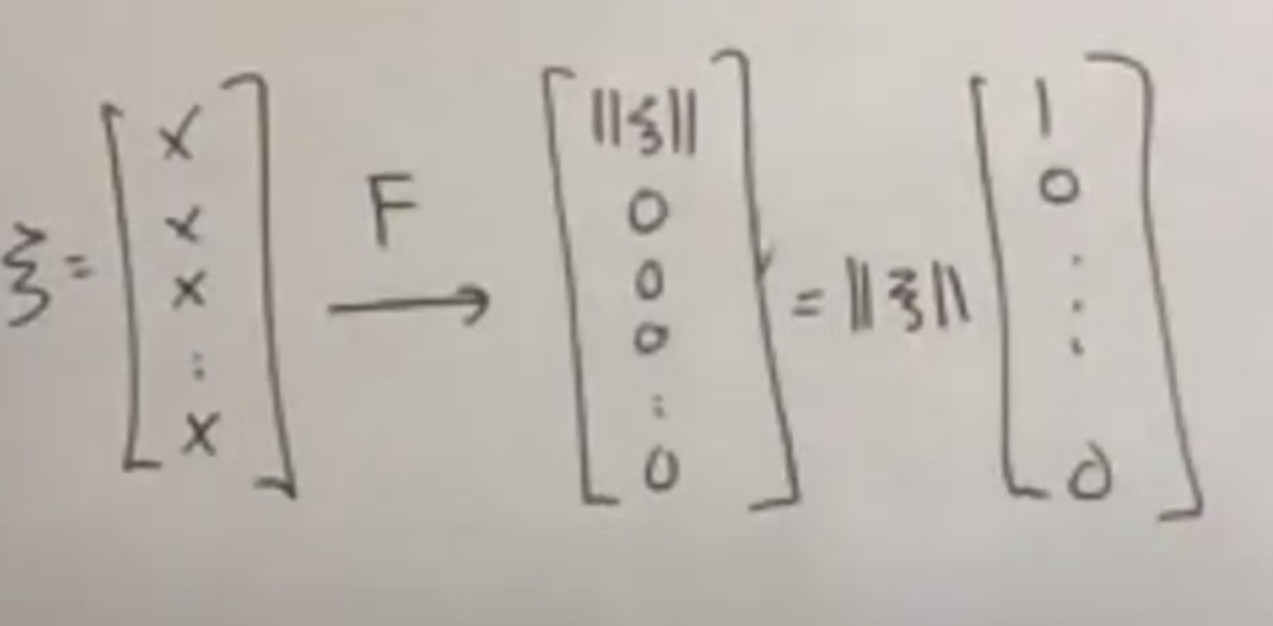 ξ = [ x x x ⋮ x ] F → [ ||ξ|| 0 0 0 ⋮ 0 ] = ||ξ|| [ 1 0 ⋮ 0 ]